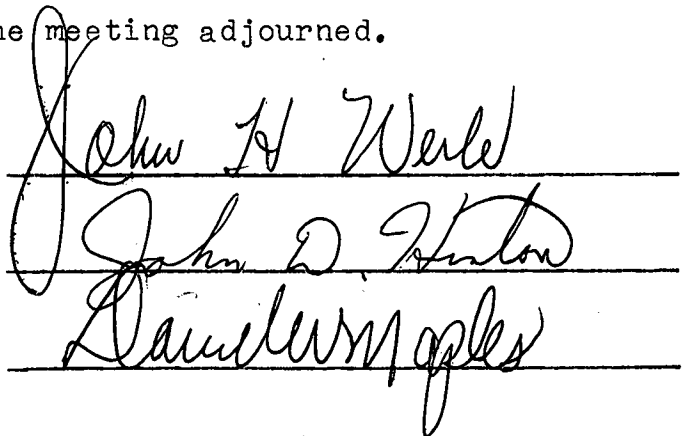 he meeting adjourned.
John H Werle
John D. Hinton
Daniel W Maples